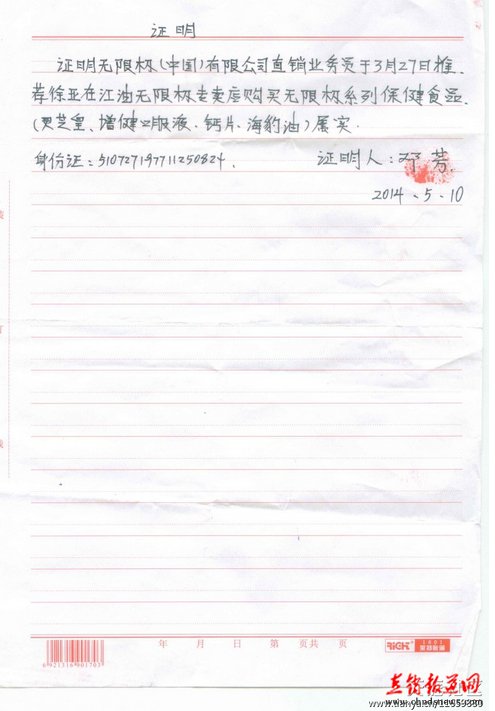 证明
证明无限极(中国)有限公司直销业务员于3月27日推
荐徐亚在江油无限极专卖店购买无限极系列保健食品
(灵芝皇、增健口服液、钙片、海豹油)属实.
身份证:510727197711250824. 证明人:邓芳.
2014.5.10
年 月 日 第 页共 页
6921316901703
1601
直销报道网